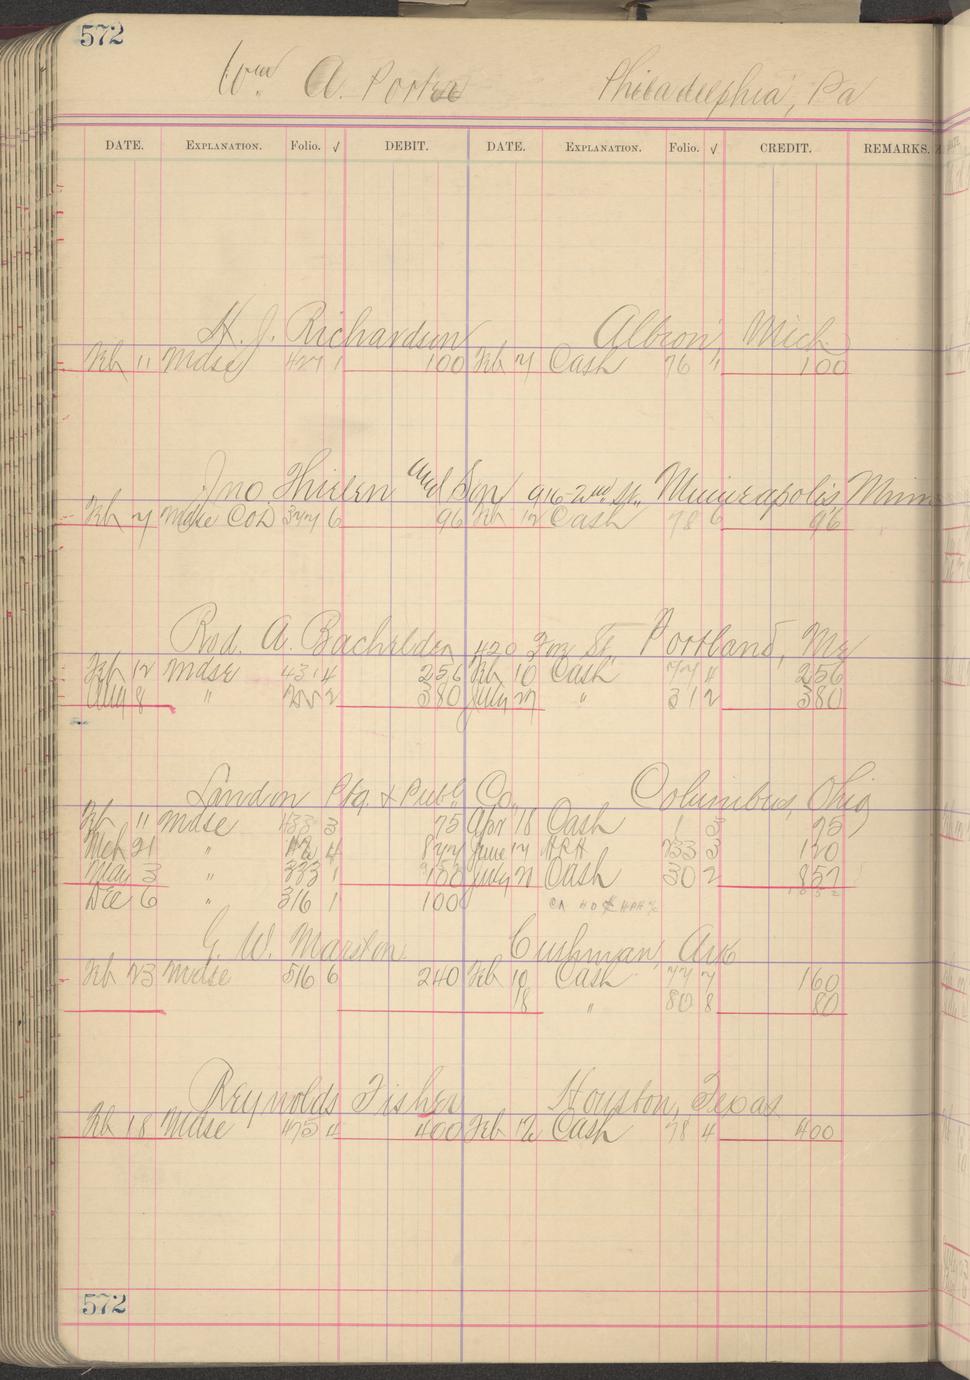 572
Wm A. Porter Philadelphia, Pa
DATE. EXPLANATION. Folio. √ DEBIT. DATE. EXPLANATION. Folio. √ CREDIT. REMARKS.
H. J. Richardson Albion, Mich
Feb 11 Mdse 1 100 Feb 7 Cash 76 " 100
Jno Thielen and Son 916-2nd St., Minneapolis Minn
Feb 7 Mdse COD 377 6 96 Feb 12 Cash 78 6 96
Rod. A. Bachelder 420 Fore St., Portland, Me
Feb 12 Mdse 431 4 256 Feb 10 Cash 77 4 256
Aug 8 " 2 380 July 27 " 31 2 380
Landon Ptg. & Publ Co., Columbus, Ohio
Feb 11 Mdse 433 3 75 Apr 18 Cash 1 3 75
Mch 21 " 4 877 June 17 ARA 233 3 120
May 3 " 333 1 100 July 21 Cash 30 2 857
Dec 6 " 316 1 100
G. W. Marston Cushman, Ark
Feb 23 Mdse 516 6 240 Feb 10 Cash 77 7 160
18 " 80 8 80
Reynolds Fisher Houston, Texas
Feb 18 Mdse 475 4 400 Feb 12 Cash 78 4 400
572